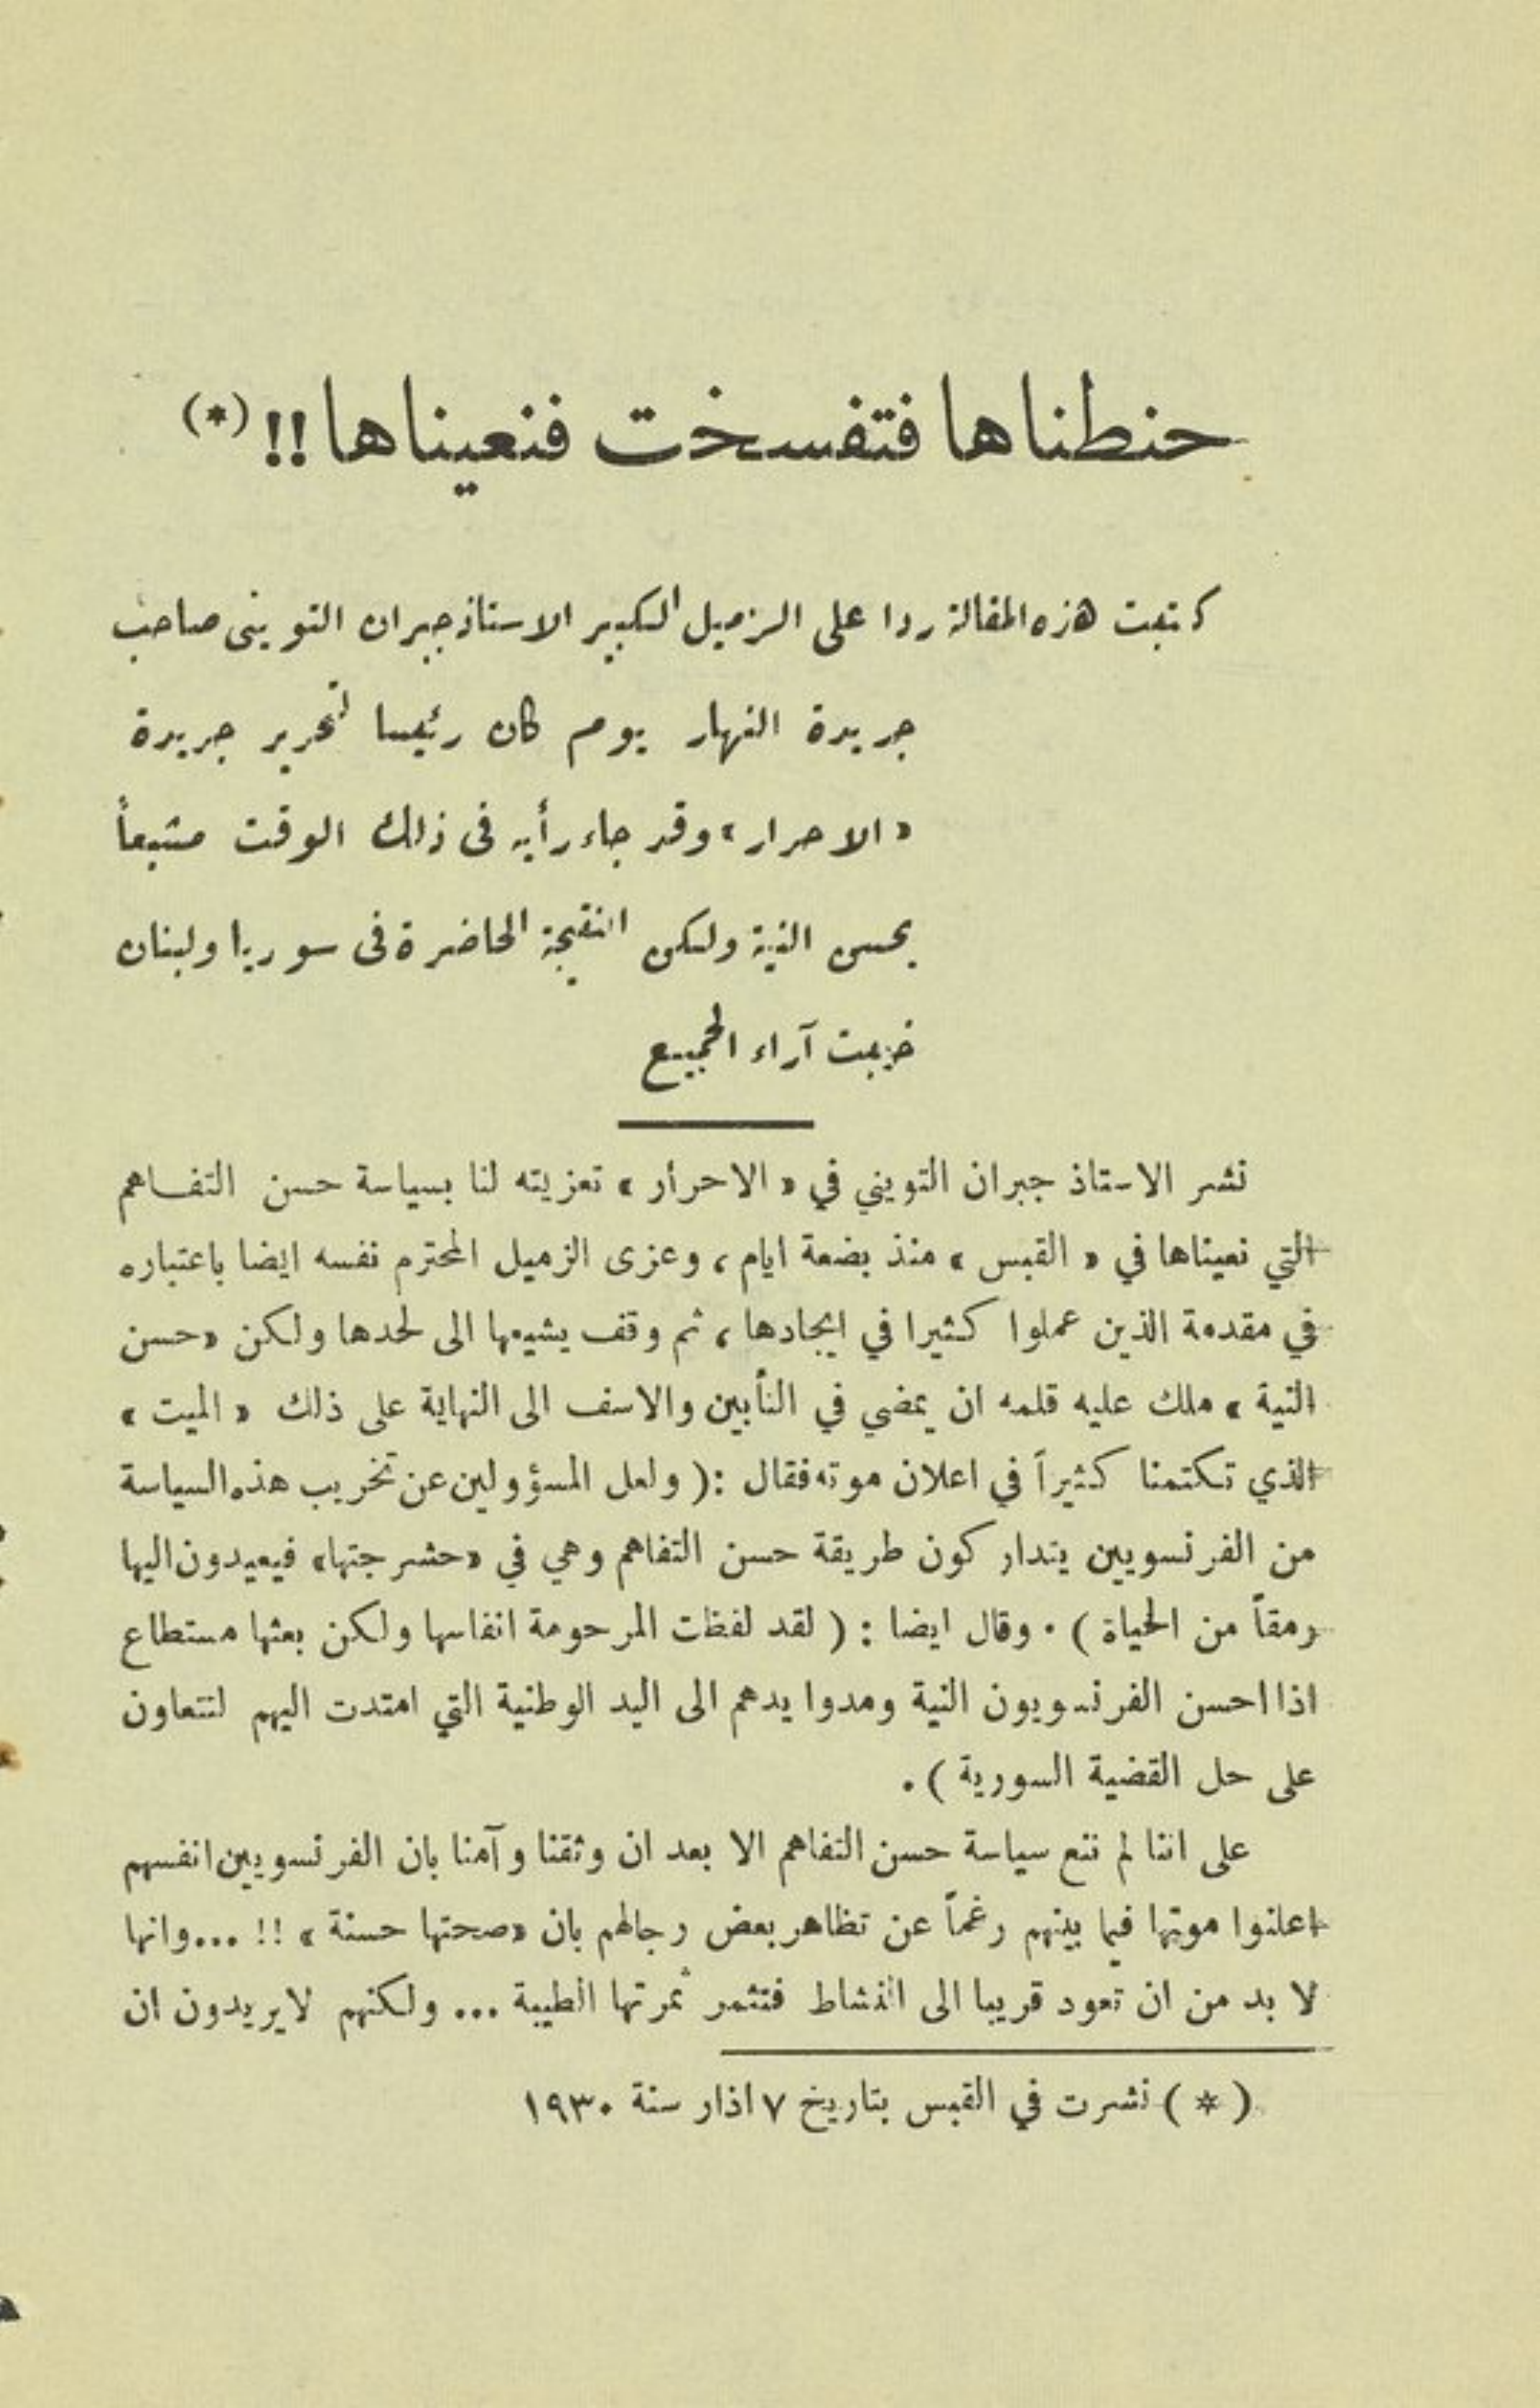 حنطناها فتفسخت فنعيناها !! (*)
كتبت هذه المقالة ردا على الزميل الكبير الاستاذ جبران التويني صاحب
جريدة النهار يوم كان رئيسا لتحرير جريدة
« الاحرار » وقد جاء رأيه في ذلك الوقت مشبعاً
بحسن النية ولكن النتيجة الحاضرة في سوريا ولبنان
خيبت آراء الجميع
نشر الاستاذ جبران التويني في « الاحرار » تعزيته لنا بسياسة حسن التفاهم
التي نعيناها في « القبس » منذ بضعة ايام ، وعزى الزميل المحترم نفسه ايضا باعتباره
في مقدمة الذين عملوا كثيرا في ايجادها ، ثم وقف يشيعها الى لحدها ولكن «حسن
النية » ملك عليه قلمه ان يمضي في التأبين والاسف الى النهاية على ذلك « الميت »
الذي تكتمنا كثيراً في اعلان موته فقال : ( ولعل المسؤولين عن تخريب هذه السياسة
من الفرنسويين يتداركون طريقة حسن التفاهم وهي في «حشرجتها» فيعيدون اليها
رمقاً من الحياة ) . وقال ايضا : ( لقد لفظت المرحومة انفاسها ولكن بعثها مستطاع
اذا احسن الفرنسويون النية ومدوا يدهم الى اليد الوطنية التي امتدت اليهم لتتعاون
على حل القضية السورية ) .
على اننا لم ننع سياسة حسن التفاهم الا بعد ان وثقنا وآمنا بان الفرنسويين انفسهم
اعلنوا موتها فيما بينهم رغماً عن تظاهر بعض رجالهم بان «صحتها حسنة » !! ...وانها
لا بد من ان تعود قريبا الى النشاط فتثمر ثمرتها الطيبة ... ولكنهم لا يريدون ان
( * ) نشرت في القبس بتاريخ ٧ اذار سنة ١٩٣٠